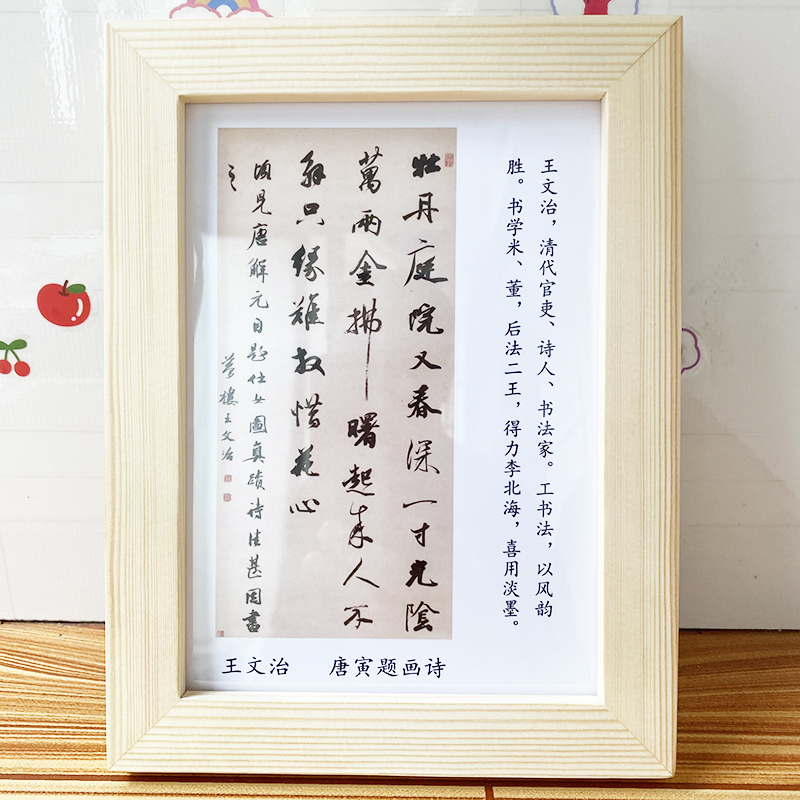 王文治，清代官吏、诗人、书法家。工书法，以风韵
胜。书学米、董，后法二王，得力李北海，喜用淡墨。
牡丹庭院又春深一寸光陰
萬兩金拂曙起来人不
解只緣難放惜花心
頃見唐解元自題仕女圖真蹟詩佳甚因書
之
夢樓王文治
王文治 唐寅题画诗